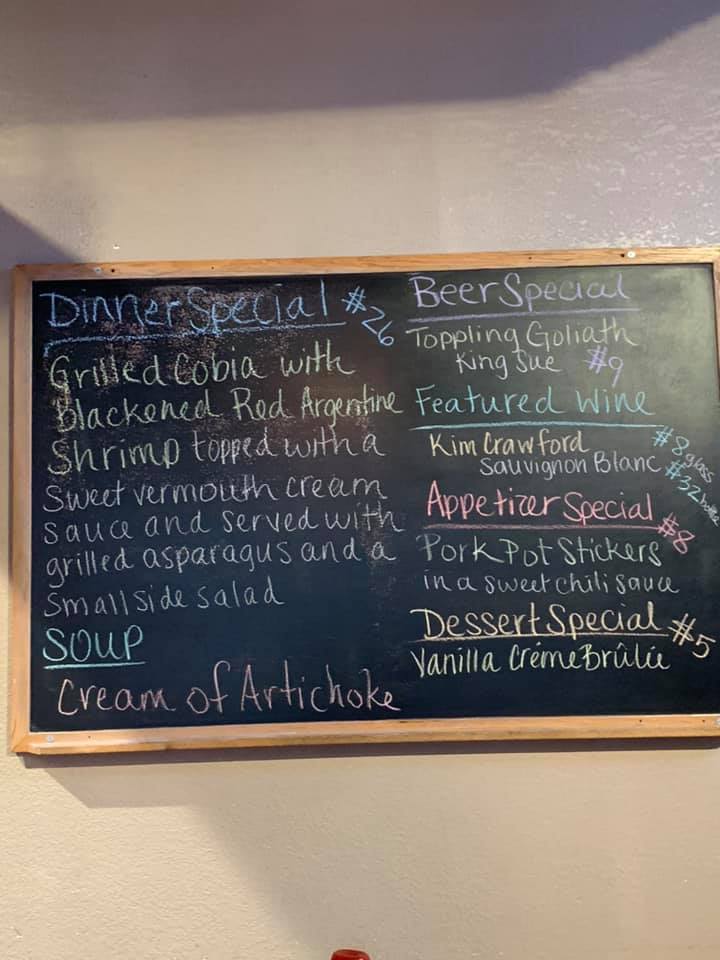 Dinner Special #26
Grilled Cobia with
blackened Red Argentine
Shrimp topped with a
Sweet vermouth cream
sauce and served with
grilled asparagus and a
Small side salad
SOUP
Cream of Artichoke
Beer Special
Toppling Goliath
King Sue #9
Featured Wine
Kim Crawford #8 glass
Sauvignon Blanc #32 bottle
Appetizer Special #8
Pork Pot Stickers
in a sweet chili sauce
Dessert Special #5
Vanilla Créme Brûlée